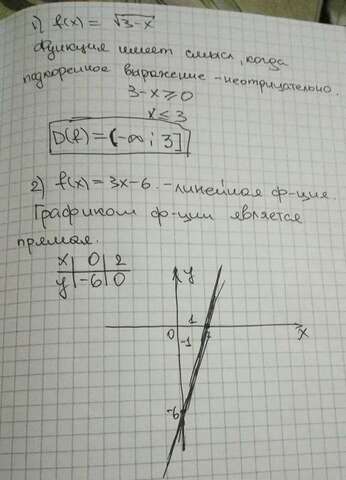 1) f(x) = √3-x
Функция имеет смысл, когда
подкоренное выражение - неотрицательно.
3-x ≥ 0
x ≤ 3
D(f) = (-∞; 3]
2) f(x) = 3x-6 - линейная ф-ция.
Графиком ф-ции является
прямая.
x | 0 | 2
y | -6 | 0
y
1
0 -1 2 x
-6